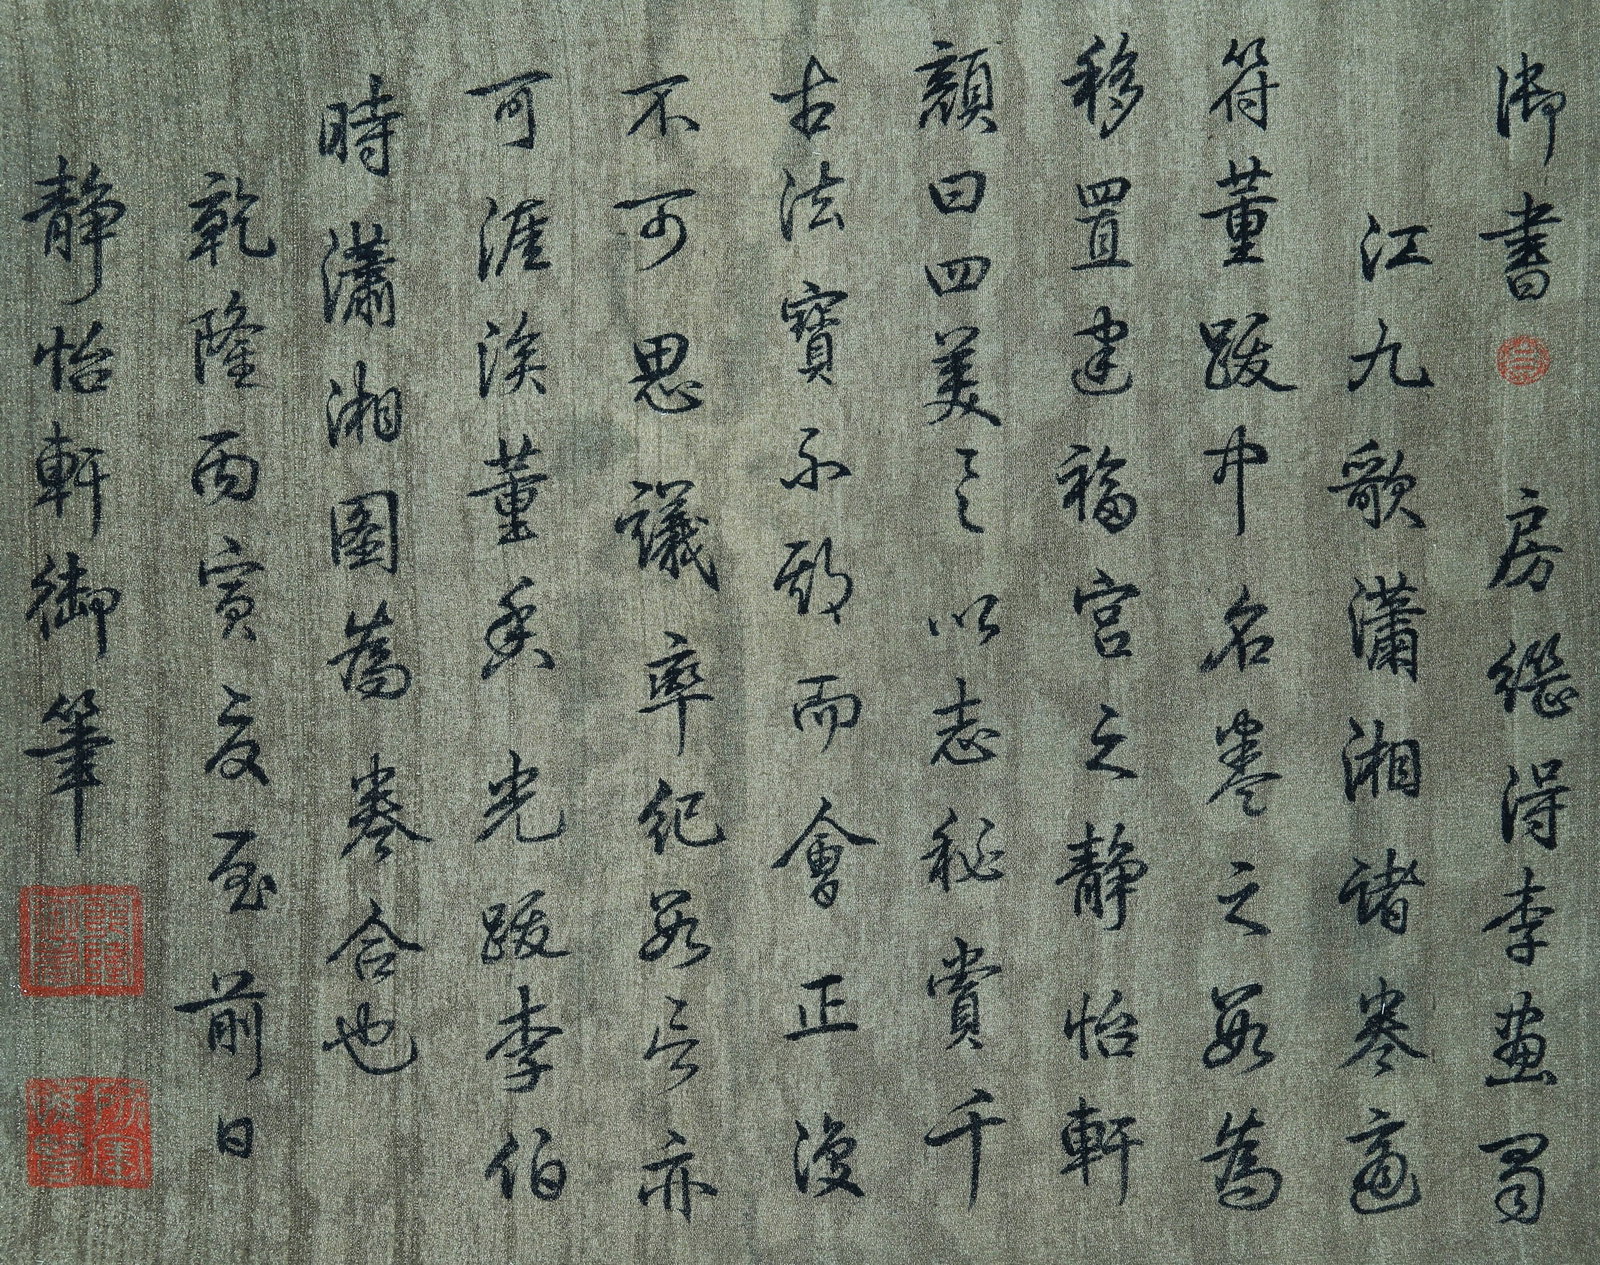 御書房繼得李畫蜀
江九歌瀟湘諸卷適
符董跋中名卷之數為
移置建福宮之靜怡軒
顏曰四美具以志秘賞千
古法寶不期而會正復
不可思議率紀數言亦
可涯涘董香光跋李伯
時瀟湘圖為卷合也
乾隆丙寅夏至前日
靜怡軒御筆
所寶惟賢